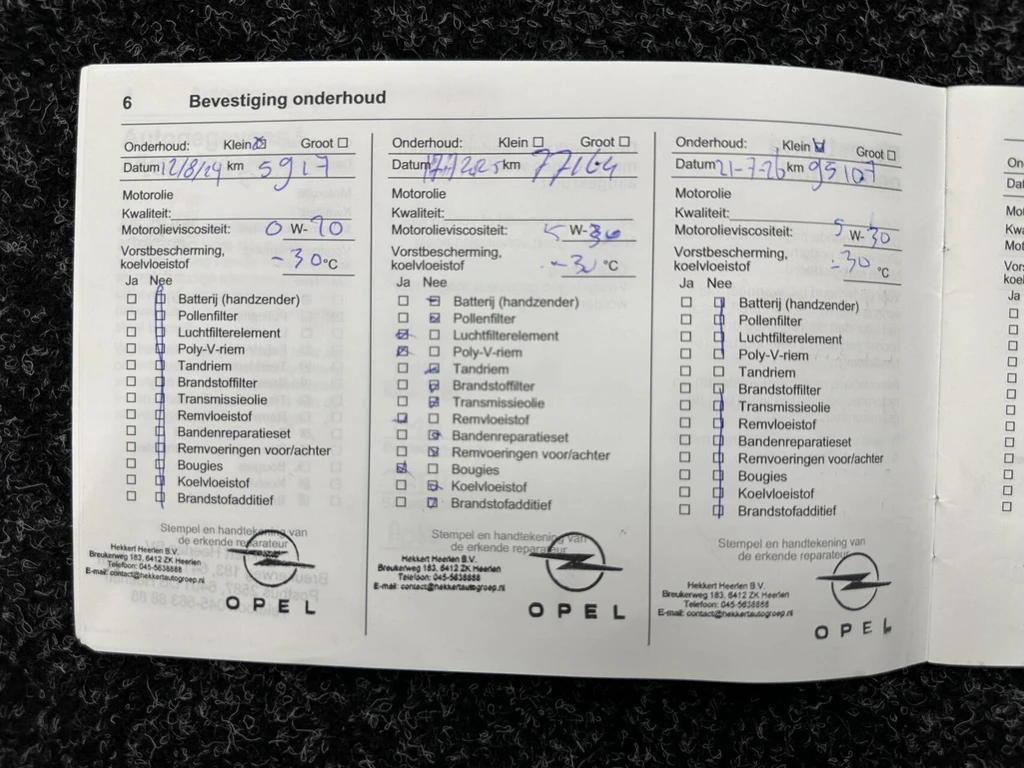 6 Bevestiging onderhoud
Onderhoud: Klein ☒ Groot ☐
Datum 12/8/24 km 5917
Motorolie
Kwaliteit:
Motorolieviscositeit: 0 W-
Vorstbescherming,
koelvloeistof -30 °C
Ja Nee
Batterij (handzender)
Pollenfilter
Luchtfilterelement
Poly-V-riem
Tandriem
Brandstoffilter
Transmissieolie
Remvloeistof
Bandenreparatieset
Remvoeringen voor/achter
Bougies
Koelvloeistof
Brandstofadditief
Stempel en handtekening van
de erkende reparateur
Hekkert Heerlen B.V.
Breukerweg 183, 6412 ZK Heerlen
Telefoon: 045-5638888
E-mail: contact@hekkertautogroep.nl
OPEL
Onderhoud: Klein ☐ Groot ☐
Datum km 77164
Motorolie
Kwaliteit:
Motorolieviscositeit: 5 W-30
Vorstbescherming,
koelvloeistof -30 °C
Ja Nee
Batterij (handzender)
Pollenfilter
Luchtfilterelement
Poly-V-riem
Tandriem
Brandstoffilter
Transmissieolie
Remvloeistof
Bandenreparatieset
Remvoeringen voor/achter
Bougies
Koelvloeistof
Brandstofadditief
Stempel en handtekening van
de erkende reparateur
Hekkert Heerlen B.V.
Breukerweg 183, 6412 ZK Heerlen
Telefoon: 045-5638888
E-mail: contact@hekkertautogroep.nl
OPEL
Onderhoud: Klein ☒ Groot ☐
Datum 21-7-26 km 95107
Motorolie
Kwaliteit:
Motorolieviscositeit: 5 W-30
Vorstbescherming,
koelvloeistof -30 °C
Ja Nee
Batterij (handzender)
Pollenfilter
Luchtfilterelement
Poly-V-riem
Tandriem
Brandstoffilter
Transmissieolie
Remvloeistof
Bandenreparatieset
Remvoeringen voor/achter
Bougies
Koelvloeistof
Brandstofadditief
Stempel en handtekening van
de erkende reparateur
Hekkert Heerlen B.V.
Breukerweg 183, 6412 ZK Heerlen
Telefoon: 045-5638888
E-mail: contact@hekkertautogroep.nl
OPEL